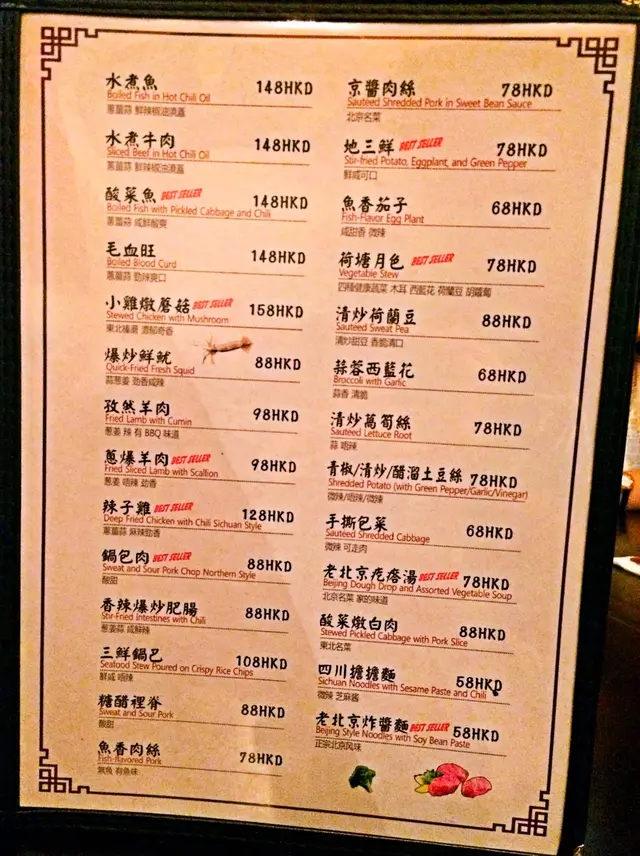 水煮魚 148HKD
Boiled Fish in Hot Chili Oil
蔥薑蒜 鮮辣椒油澆蓋
水煮牛肉 148HKD
Sliced Beef in Hot Chili Oil
蔥薑蒜 鮮辣椒油澆蓋
酸菜魚 BEST SELLER 148HKD
Boiled Fish with Pickled Cabbage and Chili
蔥薑蒜 咸鮮酸爽
毛血旺 148HKD
Boiled Blood Curd
蔥薑蒜 勁辣爽口
小雞燉蘑菇 BEST SELLER 158HKD
Stewed Chicken with Mushroom
東北榛湯 濃郁奇香
爆炒鮮魷 88HKD
Quick-Fried Fresh Squid
蒜蔥姜 勁香咸辣
孜然羊肉 98HKD
Fried Lamb with Cumin
蔥姜 辣 有 BBQ 味道
蔥爆羊肉 BEST SELLER 98HKD
Fried Sliced Lamb with Scallion
蔥姜 唔辣 勁香
辣子雞 BEST SELLER 128HKD
Deep Fried Chicken with Chili Sichuan Style
蔥薑蒜 麻辣勁香
鍋包肉 BEST SELLER 88HKD
Sweat and Sour Pork Chop Northern Style
酸甜
香辣爆炒肥腸 88HKD
Stir-Fried Intestines with Chili
蔥姜蒜 咸鮮辣
三鮮鍋巴 108HKD
Seafood Stew Poured on Crispy Rice Chips
鮮咸 唔辣
糖醋裡脊 88HKD
Sweat and Sour Pork
酸甜
魚香肉絲 78HKD
Fish-flavored Pork
無魚 有魚味
京醬肉絲 78HKD
Sauteed Shredded Pork in Sweet Bean Sauce
北京名菜
地三鮮 BEST SELLER 78HKD
Stir-fried Potato, Eggplant, and Green Pepper
鮮咸可口
魚香茄子 68HKD
Fish-Flavor Egg Plant
咸甜香 微辣
荷塘月色 BEST SELLER 78HKD
Vegetable Stew
四種健康蔬菜 木耳 西藍花 荷蘭豆 胡蘿蔔
清炒荷蘭豆 88HKD
Sauteed Sweat Pea
清炒甜豆 香脆清口
蒜蓉西藍花 68HKD
Broccoli with Garlic
蒜香 清脆
清炒萵筍絲 78HKD
Sauteed Lettuce Root
蒜 唔辣
青椒/清炒/醋溜土豆絲 78HKD
Shredded Potato (with Green Pepper/Garlic/Vinegar)
微辣/唔辣/微辣
手撕包菜 68HKD
Sauteed Shredded Cabbage
微辣 可走肉
老北京疙瘩湯 BEST SELLER 78HKD
Beijing Dough Drop and Assorted Vegetable Soup
北京名菜 家的味道
酸菜燉白肉 88HKD
Stewed Pickled Cabbage with Pork Slice
東北名菜
四川擔擔麵 58HKD
Sichuan Noodles with Sesame Paste and Chili
微辣 芝麻醬
老北京炸醬麵 BEST SELLER 58HKD
Beijing Style Noodles with Soy Bean Paste
正宗北京风味